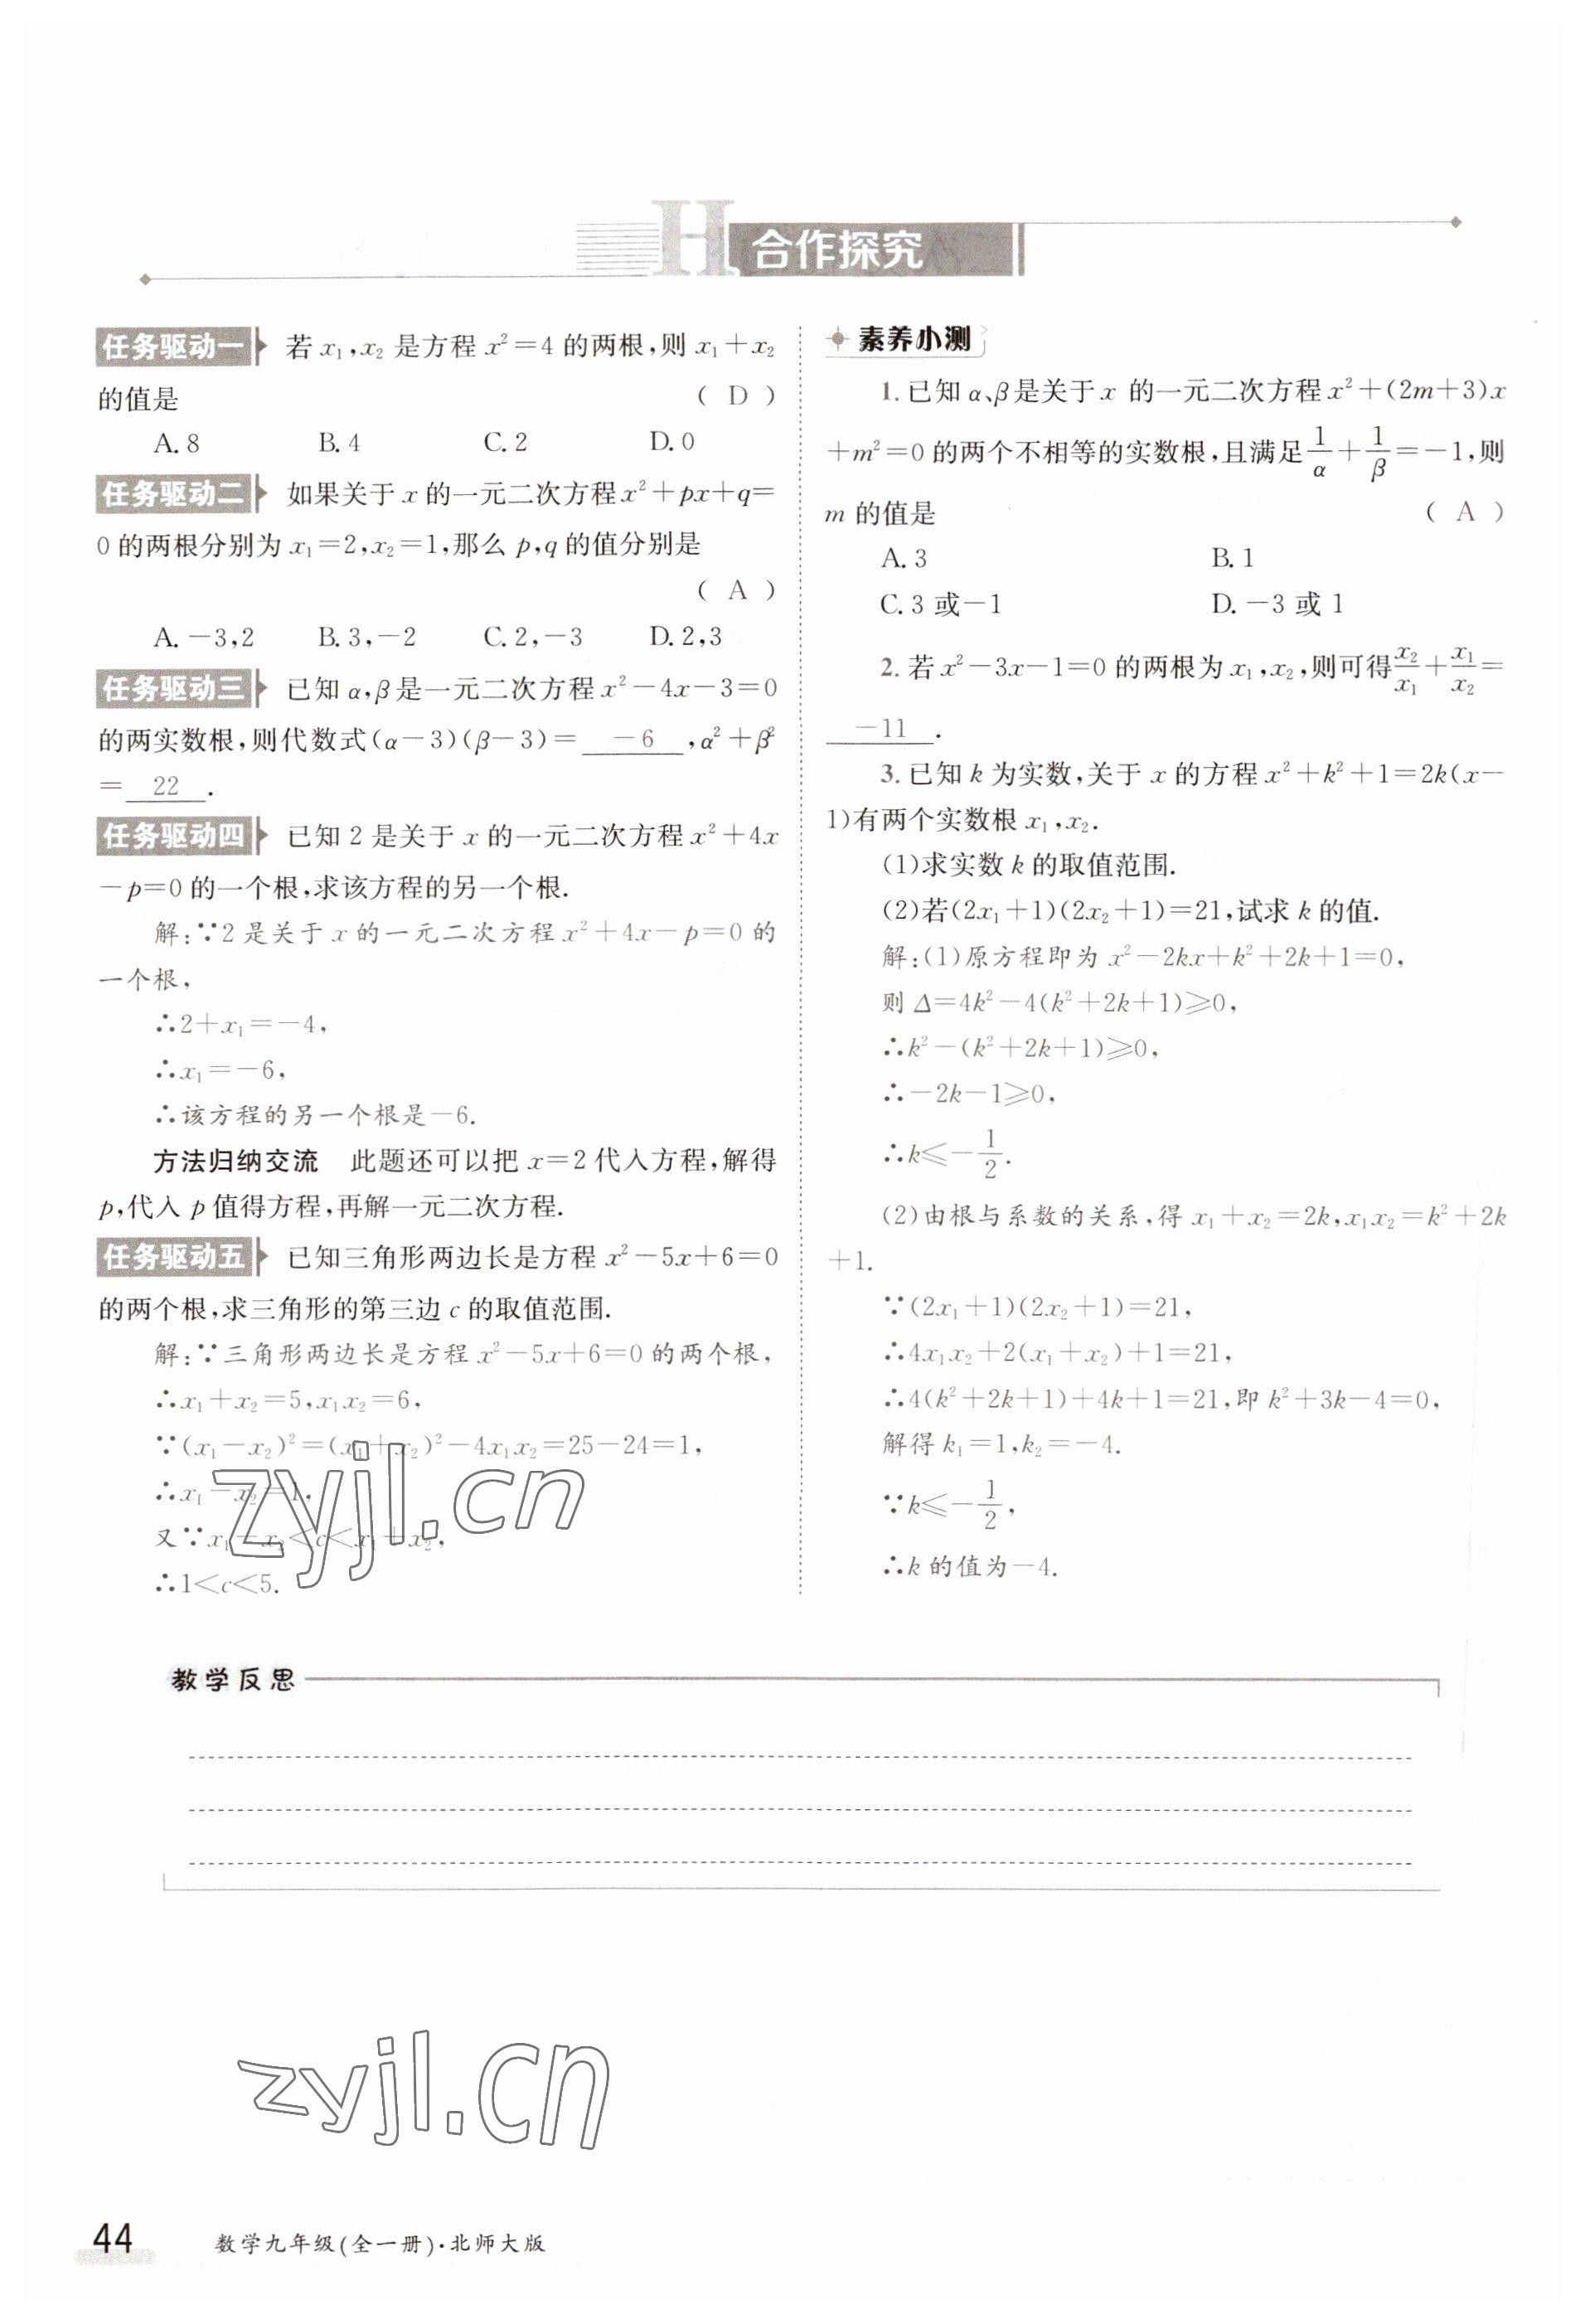 H 合作探究
任务驱动一 若 x₁,x₂ 是方程 x²=4 的两根,则 x₁+x₂
的值是 ( D )
A. 8 B. 4 C. 2 D. 0
任务驱动二 如果关于 x 的一元二次方程 x²+px+q=
0 的两根分别为 x₁=2,x₂=1,那么 p,q 的值分别是
( A )
A. －3,2 B. 3,－2 C. 2,－3 D. 2,3
任务驱动三 已知 α,β是一元二次方程 x²－4x－3=0
的两实数根,则代数式(α－3)(β－3)= －6 ,α²+β²
= 22 .
任务驱动四 已知 2 是关于 x 的一元二次方程 x²+4x
－p=0 的一个根,求该方程的另一个根.
解:∵2 是关于 x 的一元二次方程 x²+4x－p=0 的
一个根,
∴2+x₁=－4,
∴x₁=－6,
∴该方程的另一个根是－6.
方法归纳交流 此题还可以把 x=2 代入方程,解得
p,代入 p 值得方程,再解一元二次方程.
任务驱动五 已知三角形两边长是方程 x²－5x+6=0
的两个根,求三角形的第三边 c 的取值范围.
解:∵三角形两边长是方程 x²－5x+6=0 的两个根,
∴x₁+x₂=5,x₁x₂=6,
∵(x₁－x₂)²=(x₁+x₂)²－4x₁x₂=25－24=1,
∴x₁－x₂=1,
又∵x₁－x₂<c<x₁+x₂,
∴1<c<5.
素养小测
1. 已知 α、β是关于 x 的一元二次方程 x²+(2m+3)x
+m²=0 的两个不相等的实数根,且满足 1/α + 1/β =－1,则
m 的值是 ( A )
A. 3 B. 1
C. 3 或－1 D. －3 或 1
2. 若 x²－3x－1=0 的两根为 x₁,x₂,则可得 x₂/x₁ + x₁/x₂ =
－11 .
3. 已知 k 为实数,关于 x 的方程 x²+k²+1=2k(x－
1)有两个实数根 x₁,x₂.
(1)求实数 k 的取值范围.
(2)若(2x₁+1)(2x₂+1)=21,试求 k 的值.
解:(1)原方程即为 x²－2kx+k²+2k+1=0,
则 Δ=4k²－4(k²+2k+1)≥0,
∴k²－(k²+2k+1)≥0,
∴－2k－1≥0,
∴k≤－1/2.
(2)由根与系数的关系,得 x₁+x₂=2k,x₁x₂=k²+2k
+1.
∵(2x₁+1)(2x₂+1)=21,
∴4x₁x₂+2(x₁+x₂)+1=21,
∴4(k²+2k+1)+4k+1=21,即 k²+3k－4=0,
解得 k₁=1,k₂=－4.
∵k≤－1/2,
∴k 的值为－4.
zyjl.cn
教学反思
zyjl.cn
44 数学九年级(全一册)·北师大版